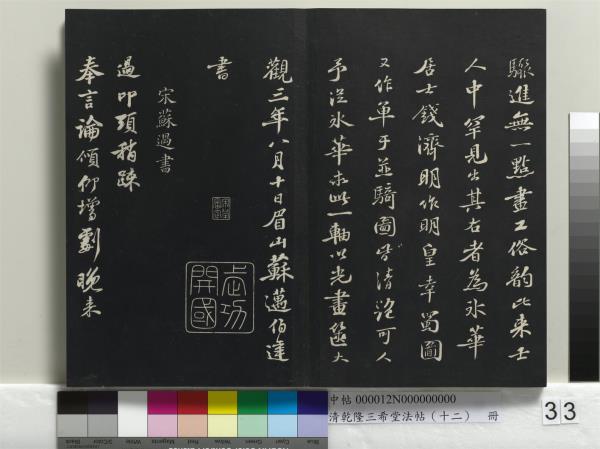 驟進無一點畫工俗韵比来士
人中罕見出其右者為冰華
居士錢濟明作明皇幸蜀圖
又作單于並騎圖皆清絕可人
予從冰華求此一軸以光畫篋大
觀三年八月十日眉山蘇邁伯達
書
宋蘇過書
過叩頭稍疎
奉言論傾仰增劇晚来
武功
開國
中帖 000012N000000000
清乾隆三希堂法帖（十二） 冊
33
Blue
Cyan
Green
Yellow
Red
Magenta
White
3/Color
Black